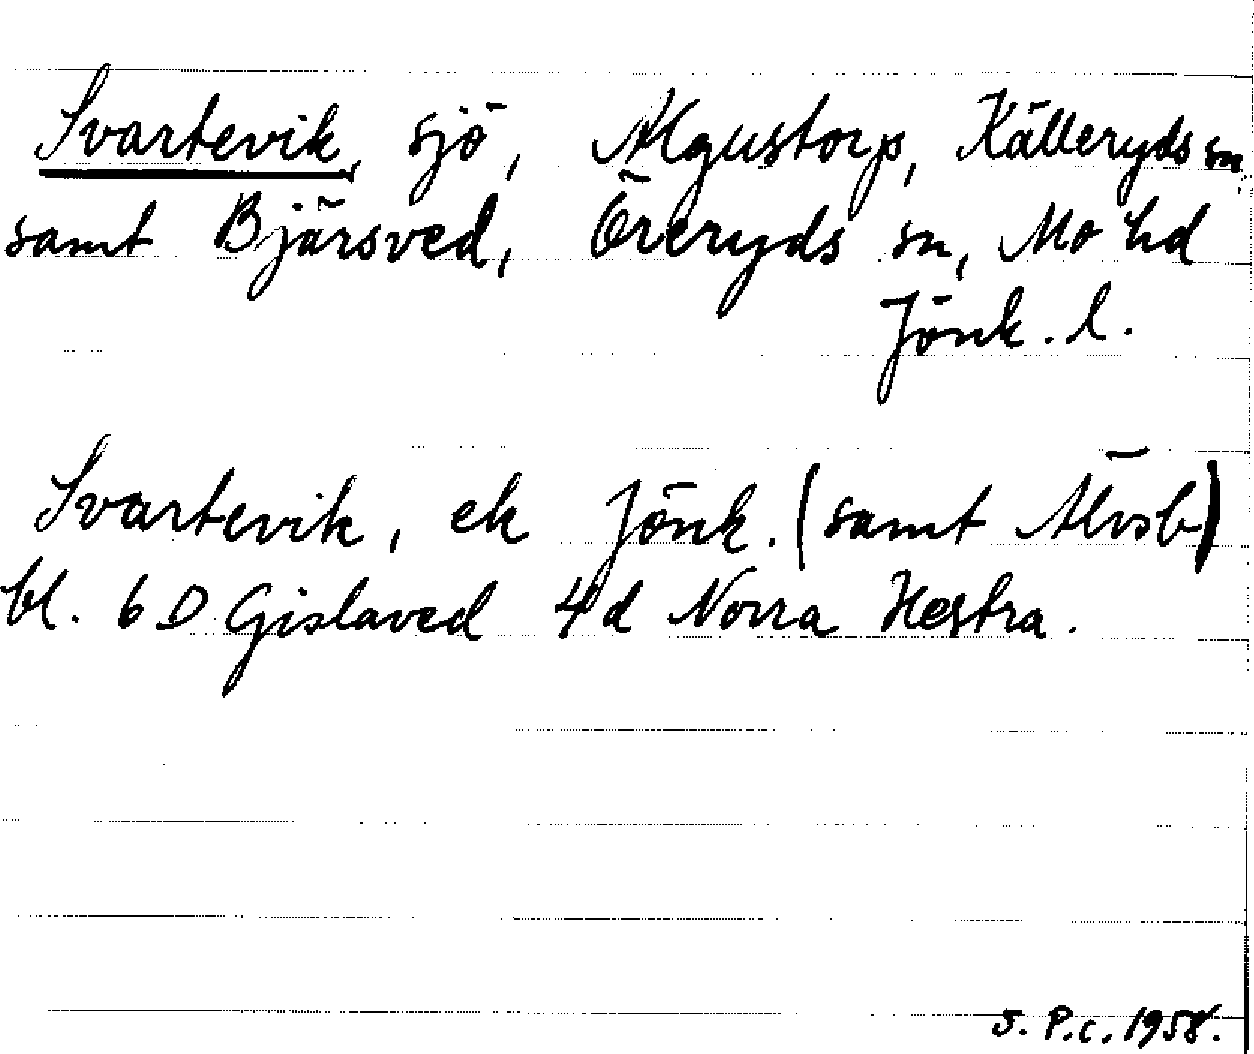 Svartevik, sjö, Älgustorp, Källeryds sn
samt Bjärsved, Öreryds sn, Mo hd
Jönk. l.
Svartevik, ek Jönk. (samt Älvsb)
bl. 6 D Gislaved 4d Norra Hestra.
S. P.c. 1958.